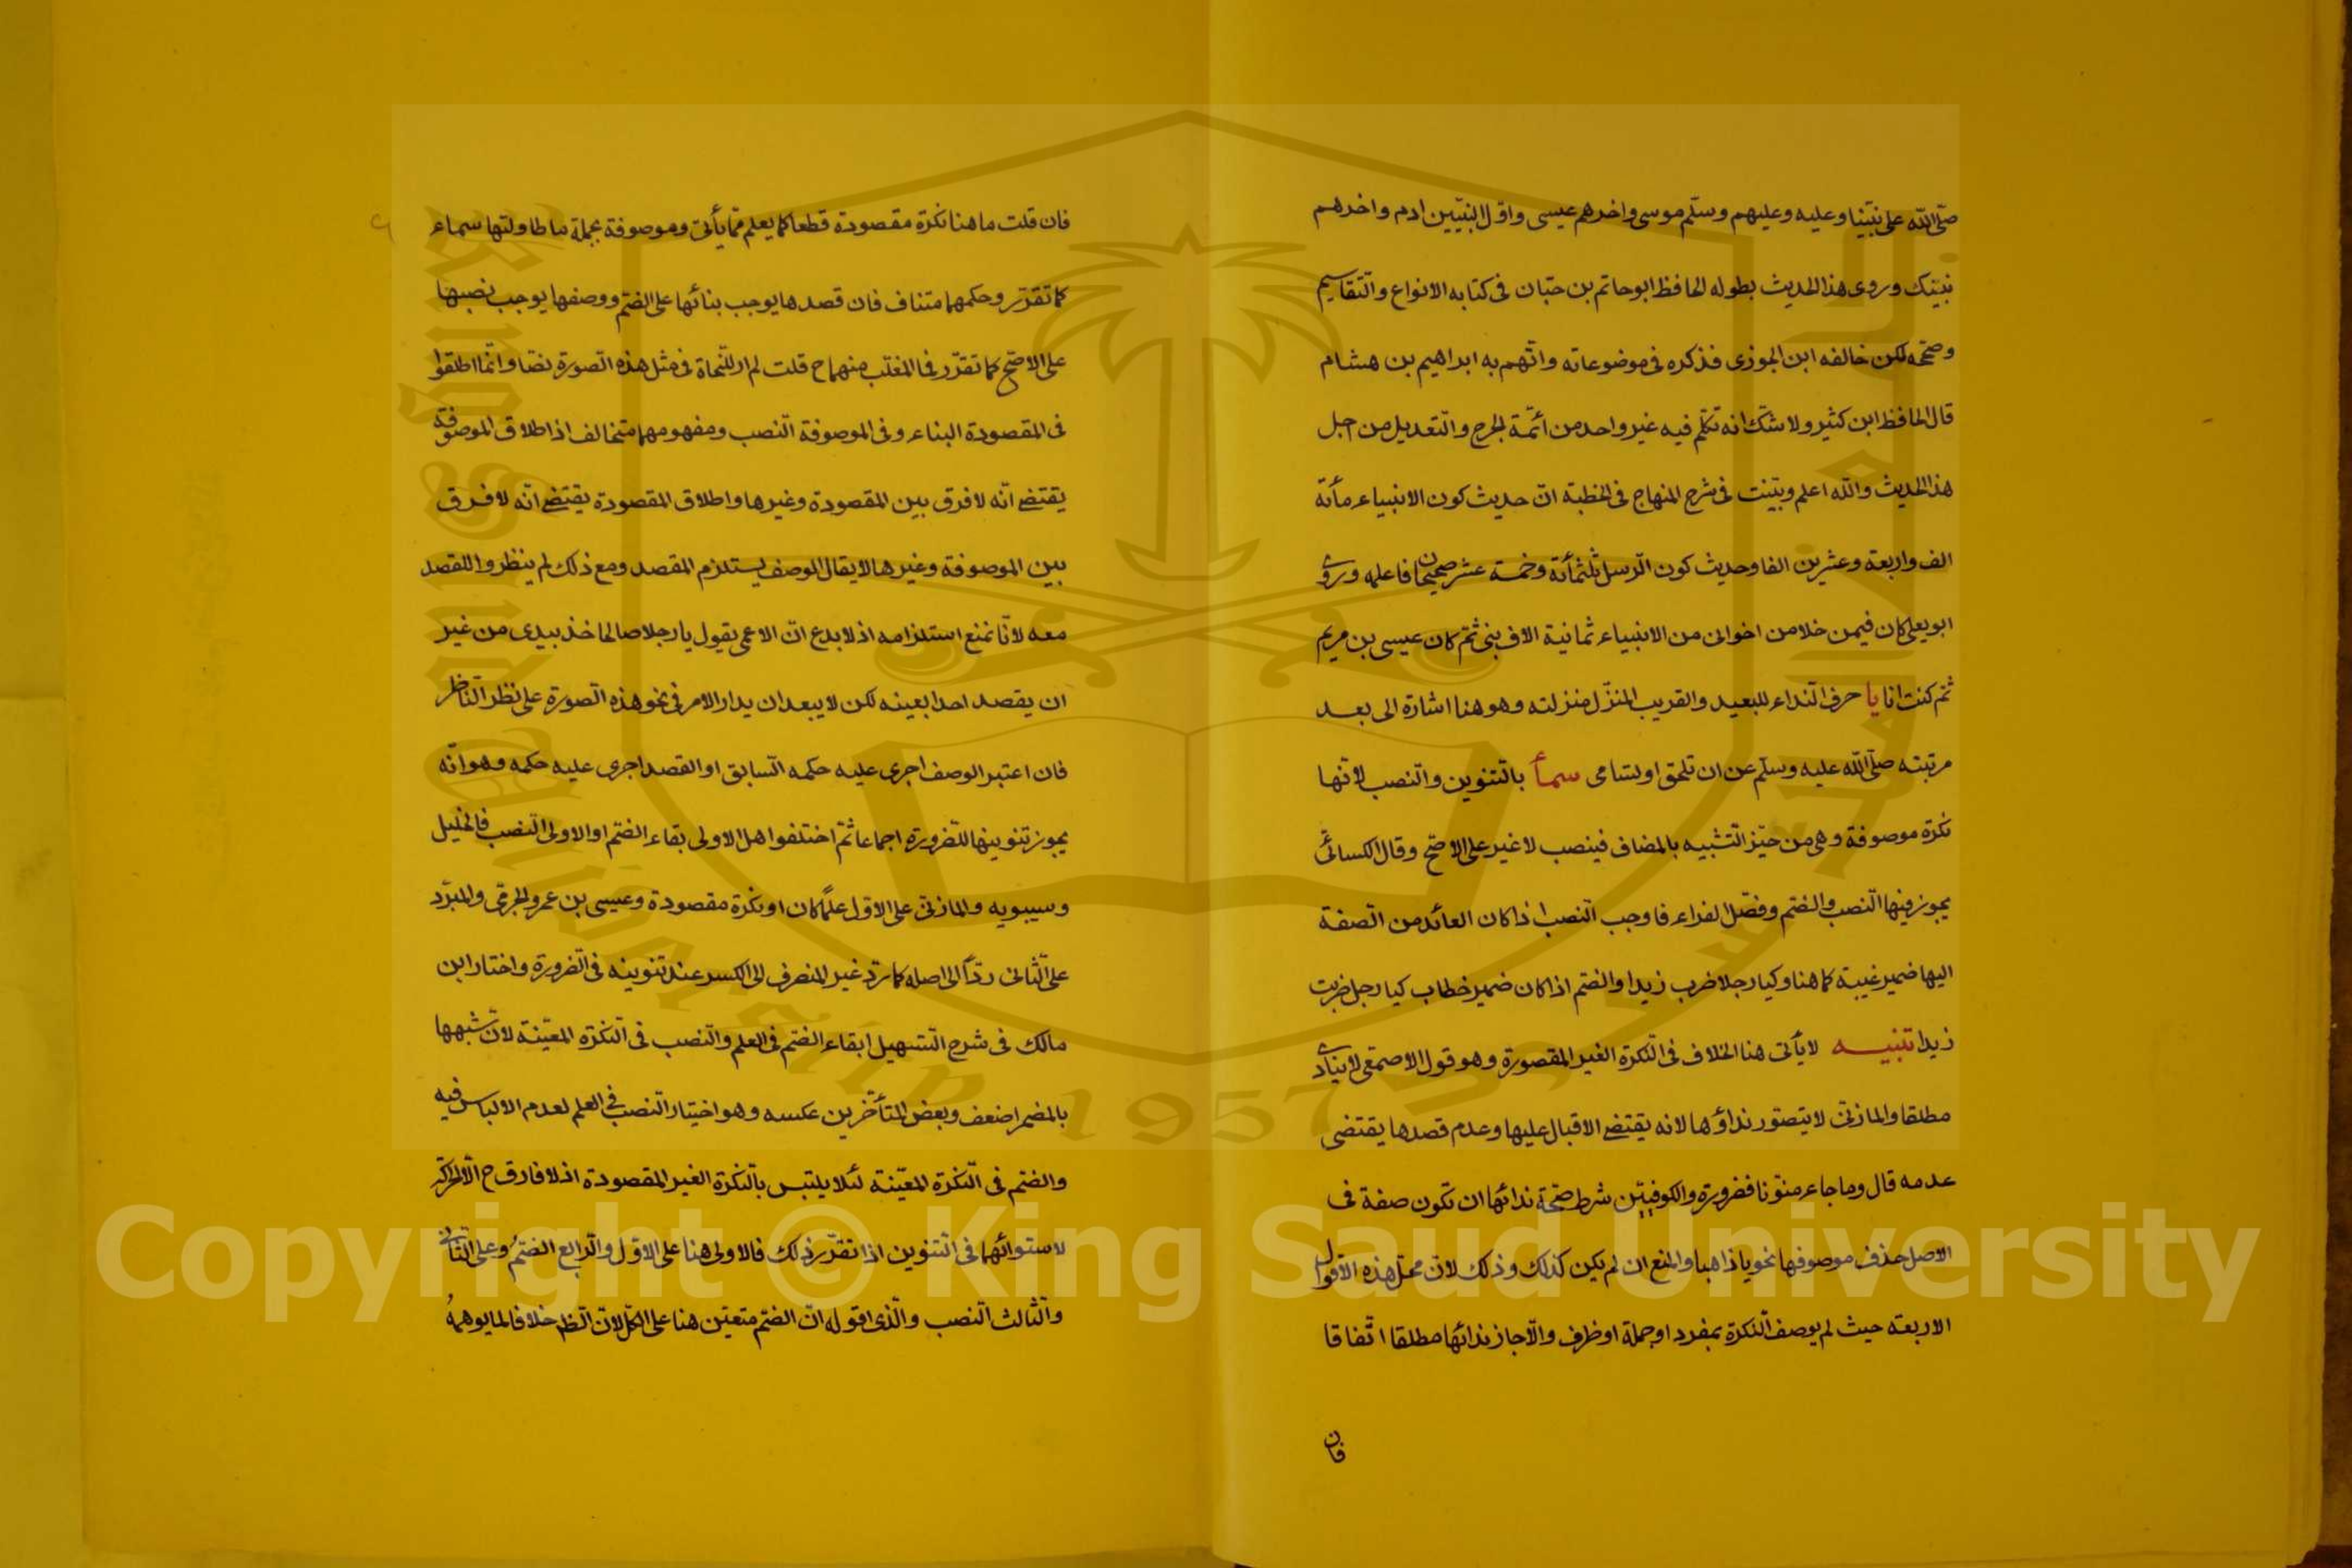 صلّى الله على نبيّنا وعليه وعليهم وسلّم موسى واخرهم عيسى واوّل النبيّين ادم واخرهم
نبيّك وروى هذا الحديث بطوله الحافظ ابو حاتم بن حبّان فى كتابه الانواع والتّقاسيم
وصحّحه لكن خالفه ابن الجوزى فذكره فى موضوعاته واتّهم به ابراهيم بن هشام
قال الحافظ ابن كثير ولا شكّ انه تكلّم فيه غير واحد من ائمّة الجرح والتّعديل من اجل
هذا الحديث والله اعلم وبيّنت فى شرح المنهاج فى الخطبة انّ حديث كون الانبياء مأتة
الف واربعة وعشرين الفا وحديث كون الرّسل ثلثمأتة وخمسة عشر صحيحان فاعلمه وروى
ابو يعلى كان فيمن خلا من اخوانى من الانبياء ثمانية الاف نبى ثمّ كان عيسى بن مريم
ثمّ كنت انا يا حرف النّداء للبعيد والقريب المنزّل منزلته وهو هنا اشارة الى بعد
مرتبته صلّى الله عليه وسلّم عن ان تلحق او تسامى سمأ بالتّنوين والنّصب لانّها
نكرة موصوفة وهى من حيّز التّشبيه بالمضاف فينصب لا غير على الاصحّ وقال الكسائىّ
يجوز فيها النّصب والضّم وفصّل الفراء فاوجب النّصب اذا كان العائد من الصّفة
اليها ضمير غيبة كما هنا وكيا رجلا ضرب زيدا والضّم اذا كان ضمير خطاب كيا رجل ضربت
زيدا تنبيـه لا يأتى هنا الخلاف فى النّكرة الغير المقصورة وهو قول الاصمعى لا ينادى
مطلقا والمازنىّ لا يتصوّر نداؤها لانه يقتضى الاقبال عليها وعدم قصدها يقتضى
عدمه قال وما جاء منوّنا فضرورة والكوفيّين شرط صحّة ندائها ان تكون صفة فى
الاصل حذف موصوفها نحو يا ذاهبا والمنع ان لم يكن كذلك وذلك لانّ محلّ هذه الاقوال
الاربعة حيث لم يوصف النّكرة بمفرد او جملة او ظرف والّا جاز ندائها مطلقا اتّفاقا
فان
فان قلت ما هنا نكرة مقصودة قطعا كما يعلم ممّا يأتى وموصوفة بجملة ما طاولتها سماء
كما تقرّر وحكمهما متناف فان قصدها يوجب بنائها على الضّم ووصفها يوجب نصبها
على الاصحّ كما تقرّر فما المغلّب منهما ح قلت لم ار للنّحاة فى مثل هذه الصّورة نصّا وانّما اطلقوا
فى المقصودة البناء وفى الموصوفة النّصب ومفهومهما متخالف اذ اطلاق الموصوفة
يقتضى انّه لا فرق بين المقصودة وغيرها واطلاق المقصودة يقتضى انّه لا فرق
بين الموصوفة وغيرها لا يقال الوصف يستلزم القصد ومع ذلك لم ينظروا للقصد
معه لانّا نمنع استلزامه اذ لا بدع انّ الاعمى يقول يا رجلا صالحا خذ بيدى من غير
ان يقصد احدا بعينه لكن لا يبعد ان يدار الامر فى نحو هذه الصّورة على نظر النّاظر
فان اعتبر الوصف اجرى عليه حكمه السّابق او القصد اجرى عليه حكمه وهو انّه
يجوز تنوينها للضّرورة اجماعا ثمّ اختلفوا هل الاولى بقاء الضّم او الاولى النّصب فالخليل
وسيبويه والمازنىّ على الاوّل علمًا كان او نكرة مقصودة وعيسى بن عمر والجرمى والمبرّد
على الثّانى ردّا الى اصله كما ترد غير المنصرف الى الكسر عند تنوينه فى الضّرورة واختار ابن
مالك فى شرح التّسهيل ابقاء الضّم فى العلم والنّصب فى النّكرة المعيّنة لانّ شبهها
بالمضمر اضعف وبعض المتأخّرين عكسه وهو اختيار النّصب فى العلم لعدم الالباس فيه
والضّم فى النّكرة المعيّنة لئلا يلتبس بالنّكرة الغير المقصودة اذ لا فارق ح الّا الحركة
لاستوائهما فى التّنوين اذا تقرّر ذلك فالاولى هنا على الاوّل والرّابع الضّمُ وعلى الثّانى
والثّالث النّصب والّذى اقوله انّ الضّم متعيّن هنا على الكلّ لانّ خلافا لما يوهمهُ
Copyright © King Saud University
King Saud University
1957